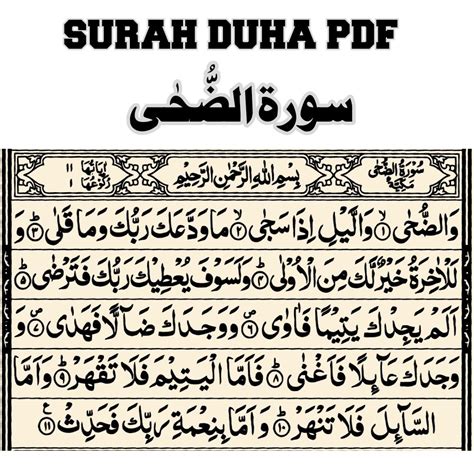 SURAH DUHA PDF
سورة الضُّحٰى
اٰیَاتُهَا ١١ رُكُوْعُهَا ١ بِسْمِ اللّٰهِ الرَّحْمٰنِ الرَّحِيْمِ سُوْرَةُ الضُّحٰى مَكِّيَّةٌ
وَالضُّحٰى ۙ‏ ﴿١﴾ وَالَّيْلِ اِذَا سَجٰى ۙ‏ ﴿٢﴾ مَا وَدَّعَكَ رَبُّكَ وَمَا قَلٰى ؕ‏ ﴿٣﴾ وَ
لَلْاٰخِرَةُ خَيْرٌ لَّكَ مِنَ الْاُوْلٰى ؕ‏ ﴿٤﴾ وَلَسَوْفَ يُعْطِيْكَ رَبُّكَ فَتَرْضٰى ؕ‏ ﴿٥﴾
اَلَمْ يَجِدْكَ يَتِيْمًا فَاٰوٰى ۪‏ ﴿٦﴾ وَوَجَدَكَ ضَآلًّا فَهَدٰى ۪‏ ﴿٧﴾ وَ
وَجَدَكَ عَآئِلًا فَاَغْنٰى ؕ‏ ﴿٨﴾ فَاَمَّا الْيَتِيْمَ فَلَا تَقْهَرْ ؕ‏ ﴿٩﴾ وَاَمَّا
السَّآئِلَ فَلَا تَنْهَرْ ؕ‏ ﴿١٠﴾ وَاَمَّا بِنِعْمَةِ رَبِّكَ فَحَدِّثْ ﴿١١﴾ ع